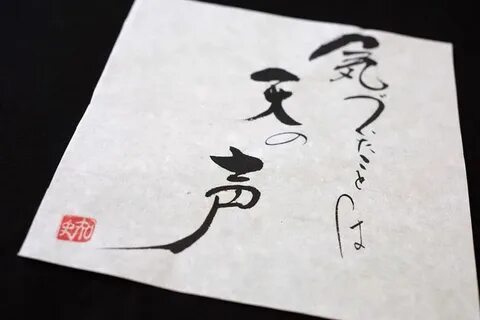 気づいたことは
天の
声